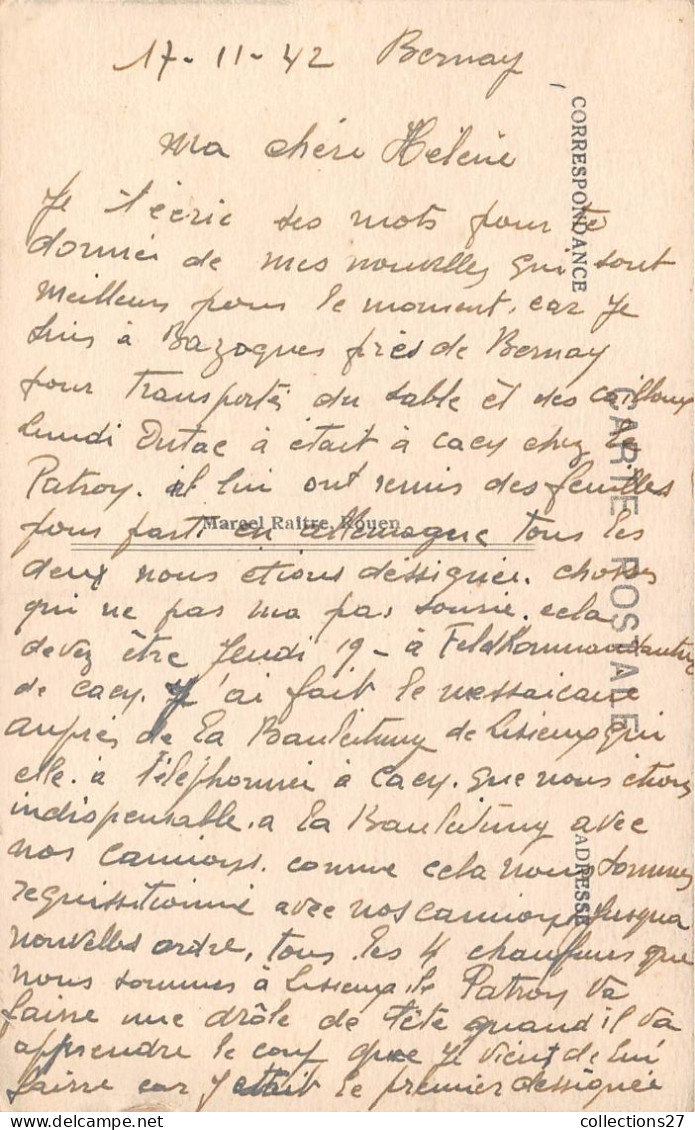 17-11-42 Bernay
Ma chére Hélène
Je t'écric ses mots pour te
donnée de mes nouvelles qui sont
meilleur pour le moment. car je
suis à Bazoques près de Bernay
pour transportés du sable et des cailloux
lundi Dutac à était à caey chez le
Patroy. il lui ont remis des feuilles
pour parti en allemagne tous les
deux nous etions déssignée. chosses
qui ne pas ma pas sourie. cela
devez être Jeudi 19 - à Feldkommandantur
de caey. J'ai fait le nessaicaire
auprès de la Bauleitung de lisieux qui
elle. à téléphonnéi à caey. que nous étions
indispensable. a la Bauleitung avec
nos camioys. comme cela nous sommes
requissitionnié avec nos camioys jusqua
nouvelles ordre, tous les 4 chauffeurs que
nous sommes à lisieux. le Patroy va
faire une drôle de tête quand il va
apprendre le coup que je vient de lui
faire car j'etait le premier dessignée
CORRESPONDANCE
CARTE POSTALE
ADRESSE
Marcel Raître, Rouen
collections27